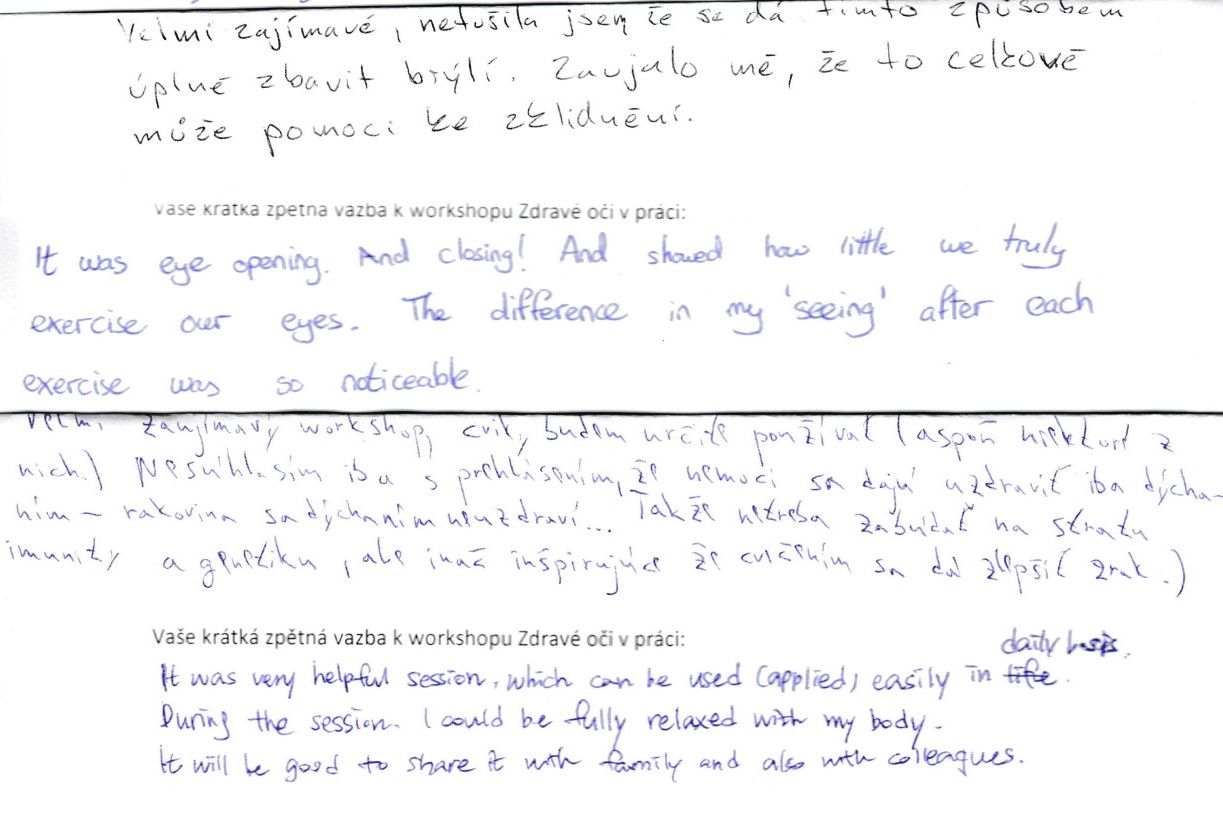 Velmi zajímavé, netušila jsem že se dá tímto způsobem
úplně zbavit brýlí. Zaujalo mě, že to celkově
může pomoci ke zklidnění.
Vaše krátká zpětná vazba k workshopu Zdravé oči v práci:
It was eye opening. And closing! And showed how little we truly
exercise our eyes. The difference in my 'seeing' after each
exercise was so noticeable.
Veľmi zaujímavý workshop, cviky budem určite používať (aspoň niektoré z
nich.) Nesúhlasím iba s prehlásením, že nemoci sa dajú uzdraviť iba dýcha-
ním – rakovina sa dýchaním neuzdraví... Takže netreba zabúdať na stratu
imunity a genetiku, ale inač inšpirujúce že cvičením sa dá zlepšiť zrak.)
Vaše krátká zpětná vazba k workshopu Zdravé oči v práci:
daily basis.
It was very helpful session, which can be used (applied) easily in life.
During the session. I could be fully relaxed with my body.
It will be good to share it with family and also with colleagues.